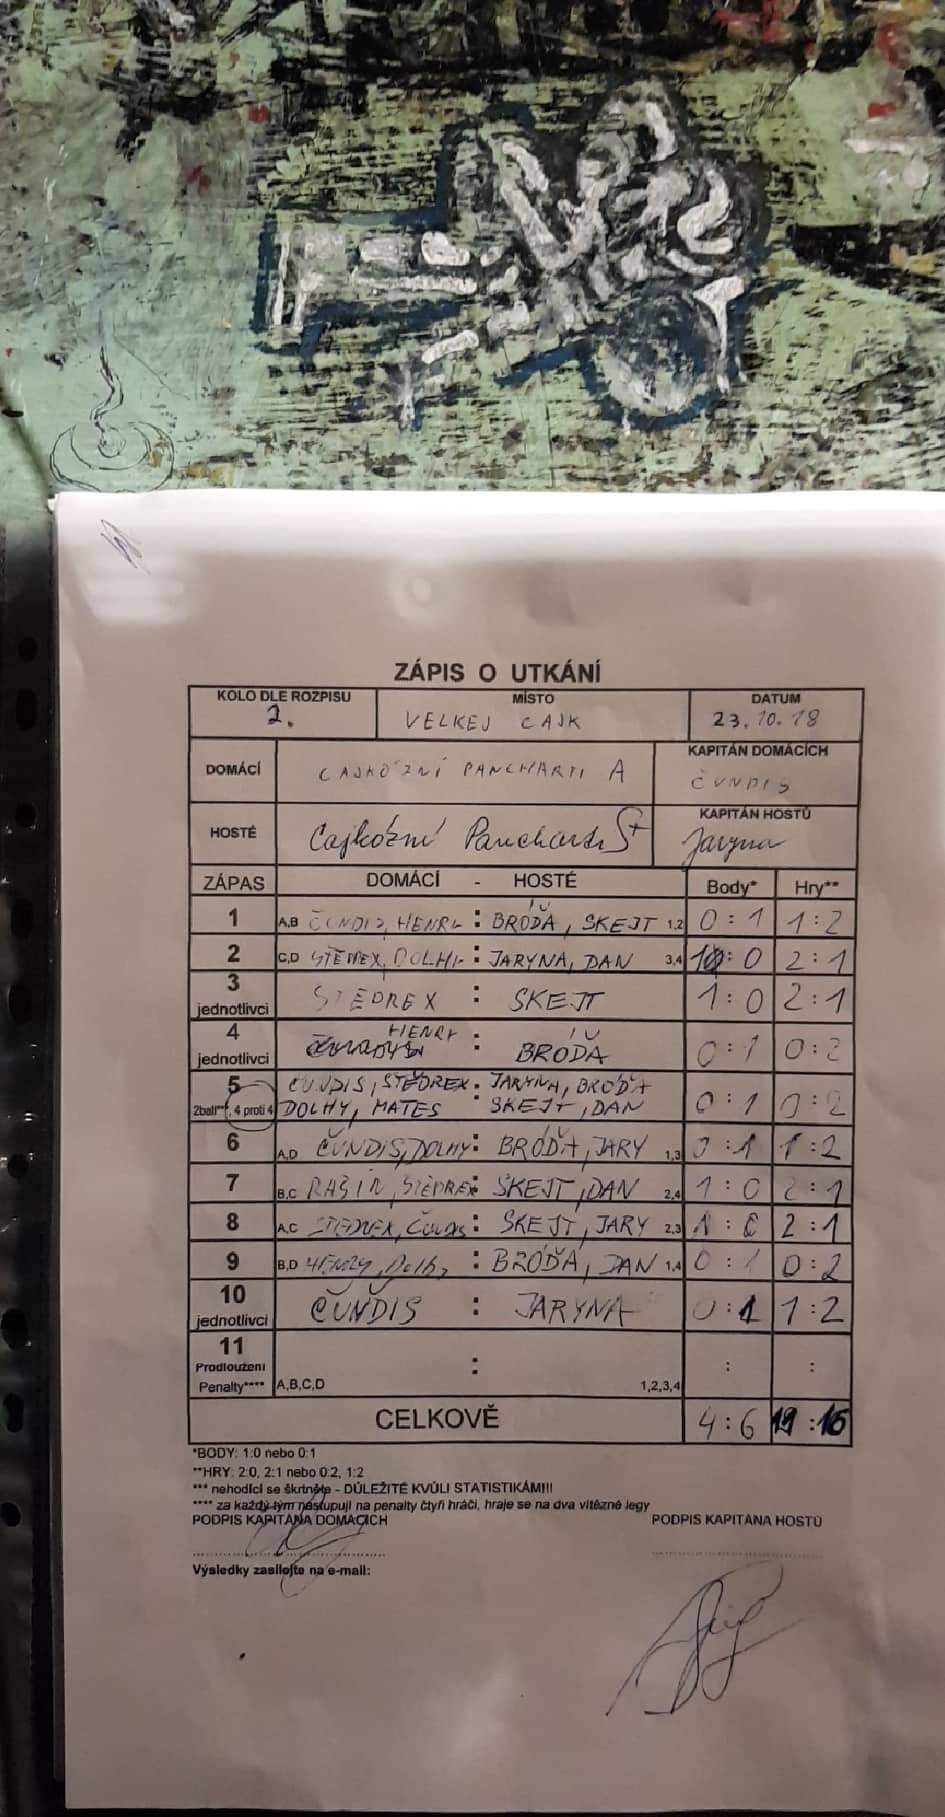 ZÁPIS O UTKÁNÍ
KOLO DLE ROZPISU MÍSTO DATUM
2. VELKEJ CAJK 23.10.18
DOMÁCÍ CAJKÓZNÍ PANCHARTI A KAPITÁN DOMÁCÍCH
ČUNDIS
HOSTÉ Cajkózní Pancharti KAPITÁN HOSTŮ
Jaryna
ZÁPAS DOMÁCÍ - HOSTÉ Body* Hry**
1 A,B ČUNDIS, HENRY : BRÓĎA, SKEJT 1,2 0:1 1:2
2 C,D STĚDREX, DOLHY : JARYNA, DAN 3,4 1:0 2:1
3 jednotlivci STĚDREX : SKEJT 1:0 2:1
4 jednotlivci HENRY : BRÓĎA 0:1 0:2
5 ČUNDIS, STĚDREX : JARYNA, BRÓĎA
2ball***, 4 proti 4 DOLHY, MATES SKEJT, DAN 0:1 0:2
6 A,D ČUNDIS, DOLHY : BRÓĎA, JARY 1,3 0:1 1:2
7 B,C STĚDREX : SKEJT, DAN 2,4 1:0 2:1
8 A,C STĚDREX, Čundis : SKEJT, JARY 2,3 1:0 2:1
9 B,D HENRY, Dolhy : BRÓĎA, DAN 1,4 0:1 0:2
10 jednotlivci ČUNDIS : JARYNA 0:1 1:2
11
Prodloužení : : :
Penalty**** A,B,C,D 1,2,3,4
CELKOVĚ 4:6
*BODY: 1:0 nebo 0:1
**HRY: 2:0, 2:1 nebo 0:2, 1:2
*** nehodící se škrtněte - DŮLEŽITÉ KVŮLI STATISTIKÁM!!!
**** za každý tým nastupují na penalty čtyři hráči, hraje se na dva vítězné legy
PODPIS KAPITÁNA DOMÁCÍCH PODPIS KAPITÁNA HOSTŮ
Výsledky zasílejte na e-mail: